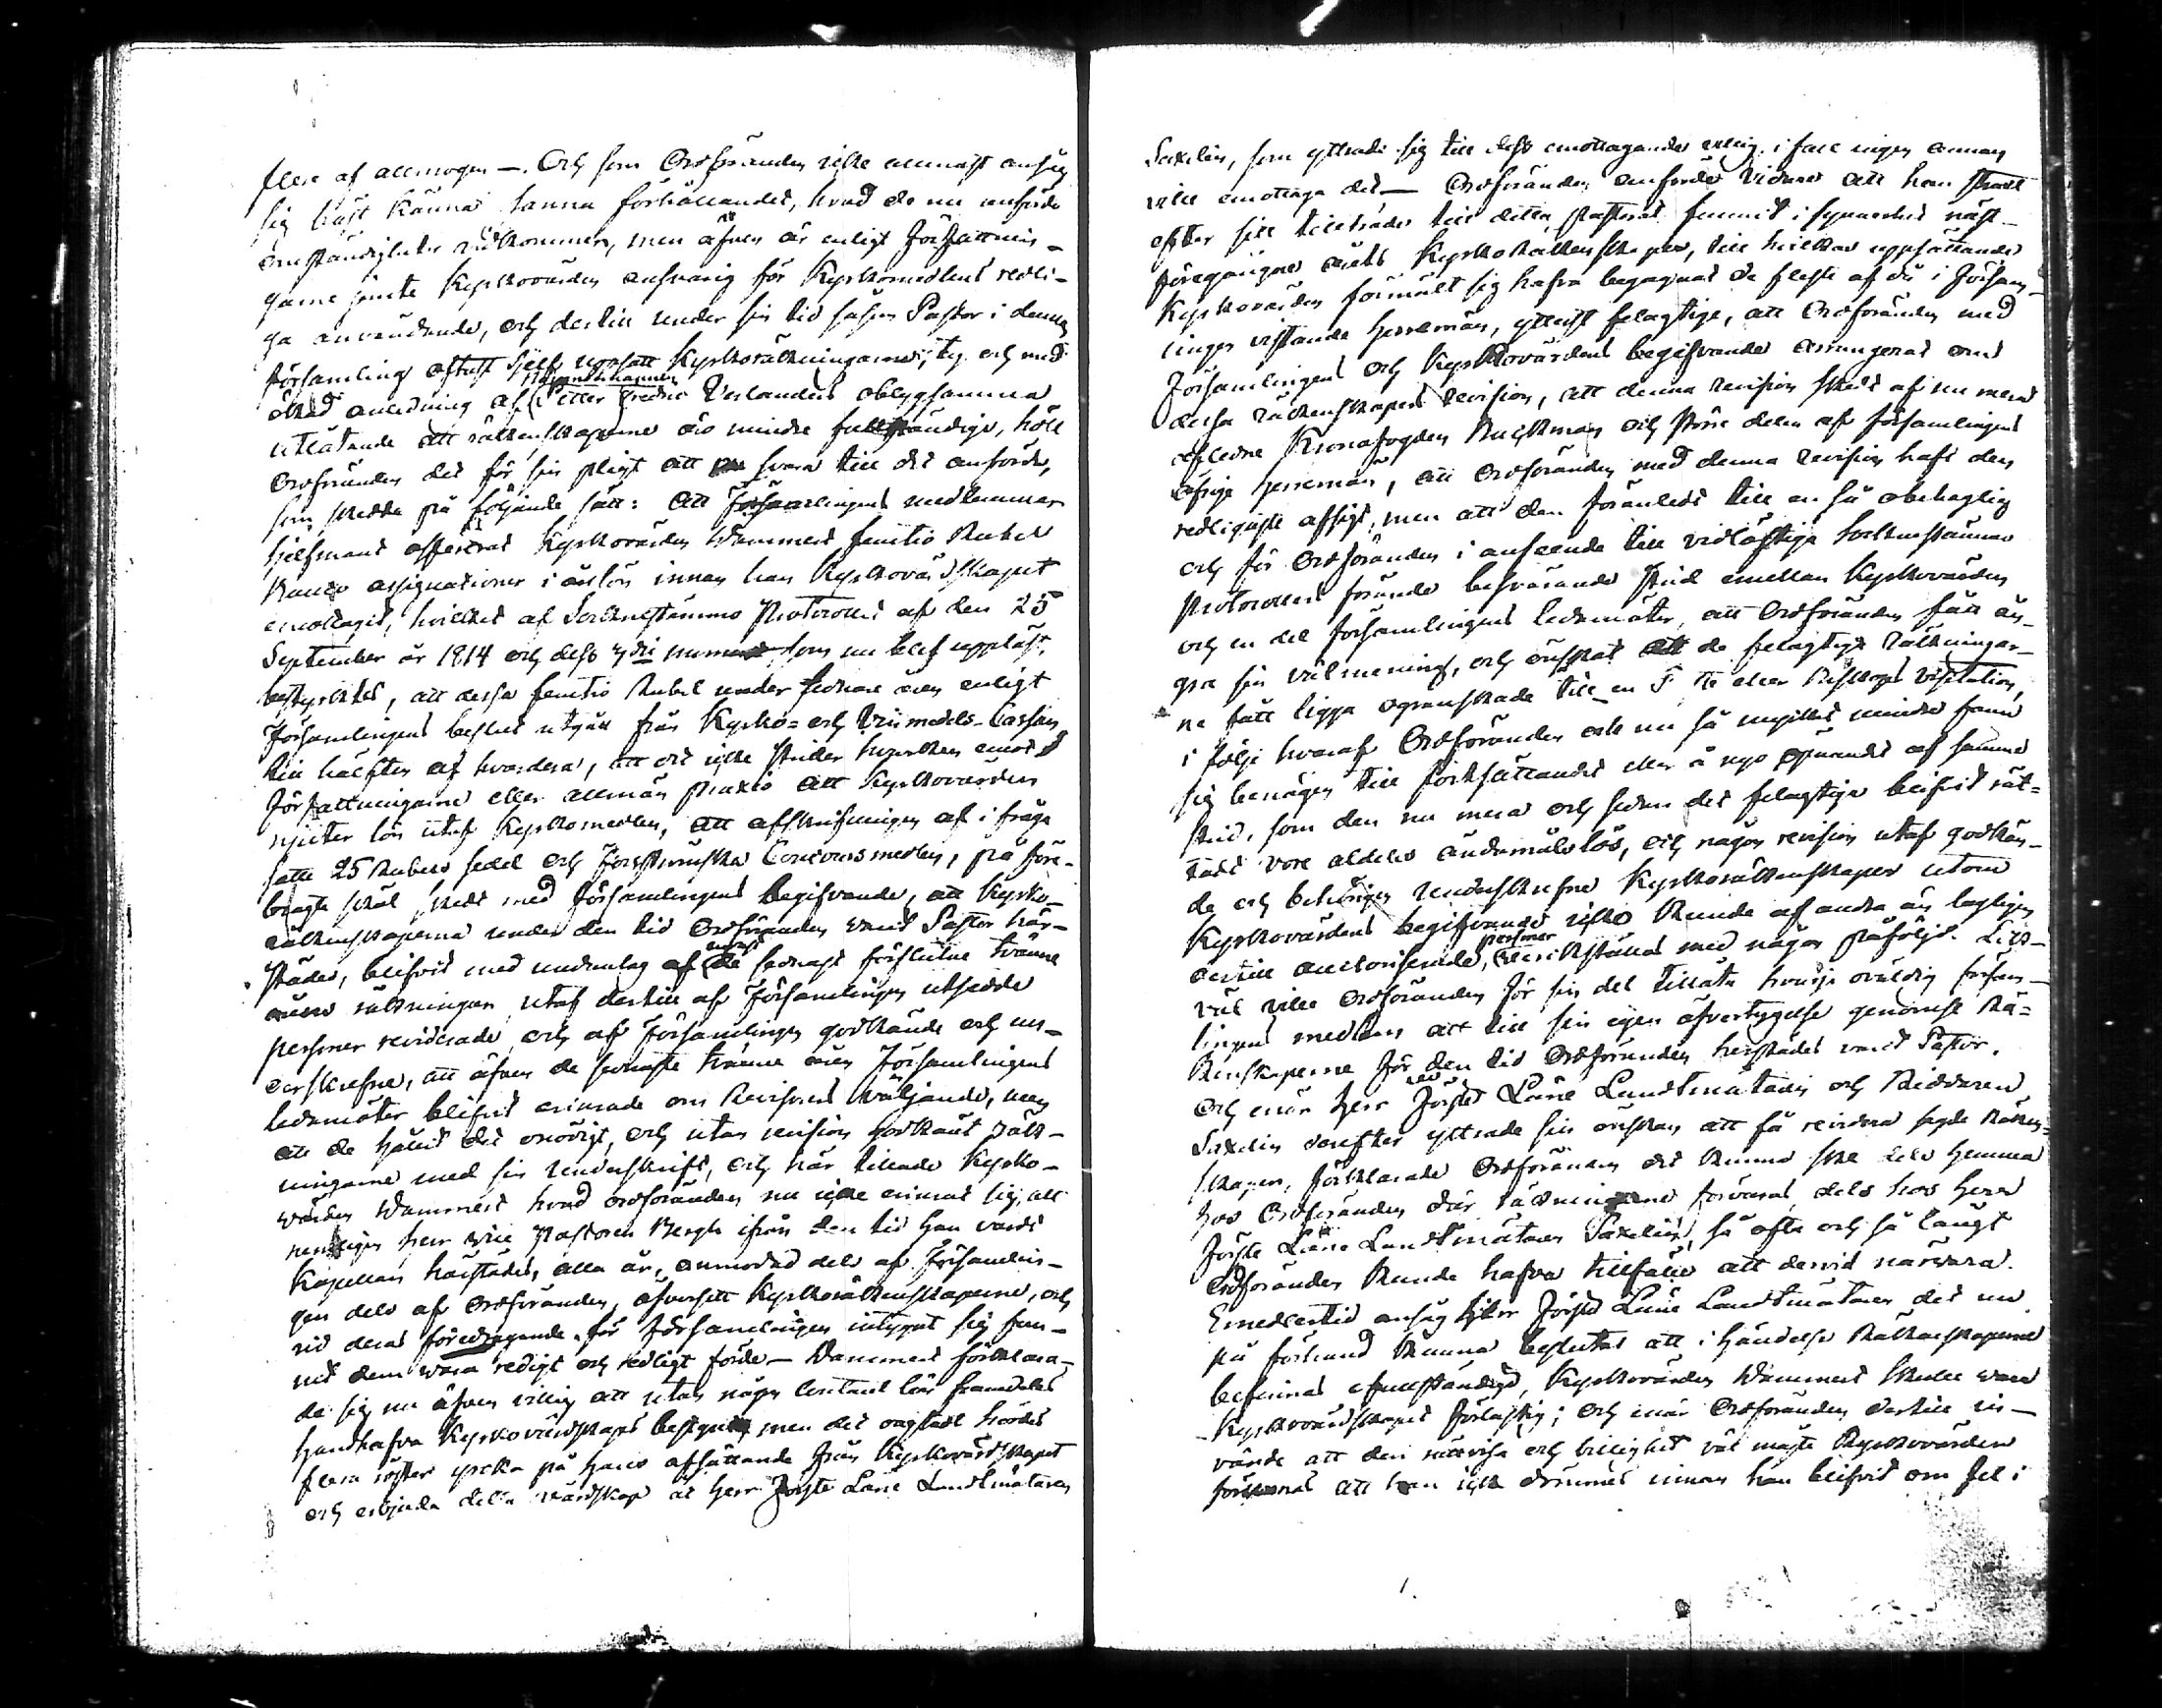 flere af allmogen —. Och som Ordföranden icke allenast ansåg
sig bäst känna sanna förhållandet, hvad de nu anförde
omständigheter vidkommer, men äfven är enligt Författnin-
garne jemte Kyrkovärden ansvarig för Kyrkomedlens redli-
ga användande, och dertill under sin tid såsom Pastor i denna
församling oftast sjelf uppsatt Kyrkoräkningarne; ty och med
ökad anledning af Petter Fredric Verlanders oblygsamma
utlåtande att räkenskaperne äro mindre fullständige, höll
Ordföranden det för sin pligt att svara till det anförde,
som skedde på följande sätt: att Församlingens medlemmar
hjelfmant offererat Kyrkovärden Wammert femtio Rubel
Banco assignationer i årslön innan han Kyrkovärdskapet
emottagit, hvilket af Sockenstämmo Protocollet af den 25
September år 1814 och dess 3die moment som nu blef uppläst,
bestyrktes, att dessa femtio Rubel under sednare åren enligt
Församlingens beslut utgått från Kyrko- och Vinmedels-Cassan
till hälften af hvardera, att det icke strider hvarken emot
Författningarne eller allmän praxis att Kyrkovärden
njuter lön utaf Kyrkomedlen, att afskrifningen af i fråga
satte 25 Rubels sedel och Concursmedlen, på före-
bragte skäl skedt med Församlingens begifvande, att Kyrko-
räkenskaperna under den tid Ordföranden varit Pastor här-
städes, blifvit med undantag af de sednast förflutne tvänne
årens räkningar utaf dertill af Församlingen utsedde
personer reviderade och af Församlingen godkände och un-
derskrefne, att äfven de sednaste tvänne åren Församlingens
ledamöter blifvit erinrade om Revisorers väljande, men
att de hållit det onödigt, och utan revision godkänt räk-
ningarne med sin underskrift, och här tillade Kyrko-
värden Wammert hvad ordföranden nu icke erinrat sig, att
nemligen herr vice Pastoren Bergh ifrån den tid han varit
Kapellan härstädes, alla år, anmodad dels af Församlin-
gen dels af Ordföranden, öfversett Kyrkoräkenskaperne, och
vid deras föredragande för församlingen intygat sig fun-
nit dem vara redigt och redligt förde — Wammert förklara-
de sig nu äfven villig att utan någon contant lön framdeles
handhafva Kyrkovärdskaps bestyret, men det oagtadt hördes
flera röster yrcka på hans afsättande från Kyrkovärdskapet
och erbjuda detta värdskap åt Herr Förste Läne Landtmätaren
Saxelin, som yttrade sig till dess emottagande villig, i fall ingen annan
ville emottaga det — Ordföranden anförde vidare att han straxt
efter sitt tillträde till detta Pastorat funnit i synnerhet näst-
föregångne årets Kyrkoräkenskaper, till hvilkas uppsättande
Kyrkovärden förmält sig hafva begagnat de fleste af de i försam-
lingen vistande herremän, ytterst felagtige, att Ordföranden med
Församlingens och Kyrkovärdens begifvande arrangerat om
dessa räckenskapers revision, att denna revision skedt af nu mera
afledne Kronofogden Backman och större delen af församlingens
öfrige herremän, att Ordföranden med denna revision haft den
redligaste afsigt, men att den föranledt till en så obehaglig
och för Ordföranden i anseende till vidlöftiga Sockenstämmo
protocollers förande besvärande strid emellan Kyrkovärden
och en del församlingens ledamöter, att Ordföranden fått ån-
gra sin välmening, och önskat att de felagtige räkningar-
ne fått ligga ogranskade till en eller Biskops visitation,
i följe hvaraf Ordföranden och nu så mycket mindre fann
sig benägen till fortsättandet eller å nyo öpnandet af samme
strid, som den nu mera och sedan det felagtiga blifvit rät-
tadt vore aldeles ändamålslös, och någon revision utaf godkän-
de och behörigen underskrefne Kyrkoräkenskaper utom
Kyrkovärdens begifvande icke kunde af andra än lagligen
dertill auctoriserade personer verkställas med någon påföljd. Lik-
väl ville Ordföranden för sin del tillåta hvarje oväldig försam-
lingens medlem att till sin egen öfvertygelse genomse Rä-
kenskaperne för den tid Ordföranden herstädes varit Pastor.
Och när Herr Förste Läne Landtmätaren och Riddaren
Saxelin derefter yttrade sin önskan att få revidera sagde Räken-
skaper, förklarade Ordföranden det kunna ske dels hemma
hos Ordföranden där räkningarne förvaras, dels hos Herr
Förste Läne Landtmätaren Saxelin, så ofta och så långt
Ordföranden kunde hafva tillfälle att dervid närvara.
Emedlertid ansåg Herr Förste Läne Landtmätaren det nu
på förhand kunna beslutas att i händelse Räkenskaperne
befinnas ofullständige, Kyrkovärden Wammert skulle vara
Kyrkovärdskapet förlustig; och när Ordföranden dertill in-
vände att den rättvisa och billighet väl måste Kyrkovärden
förunnas att han icke dömmes innan han blifvit om fel i